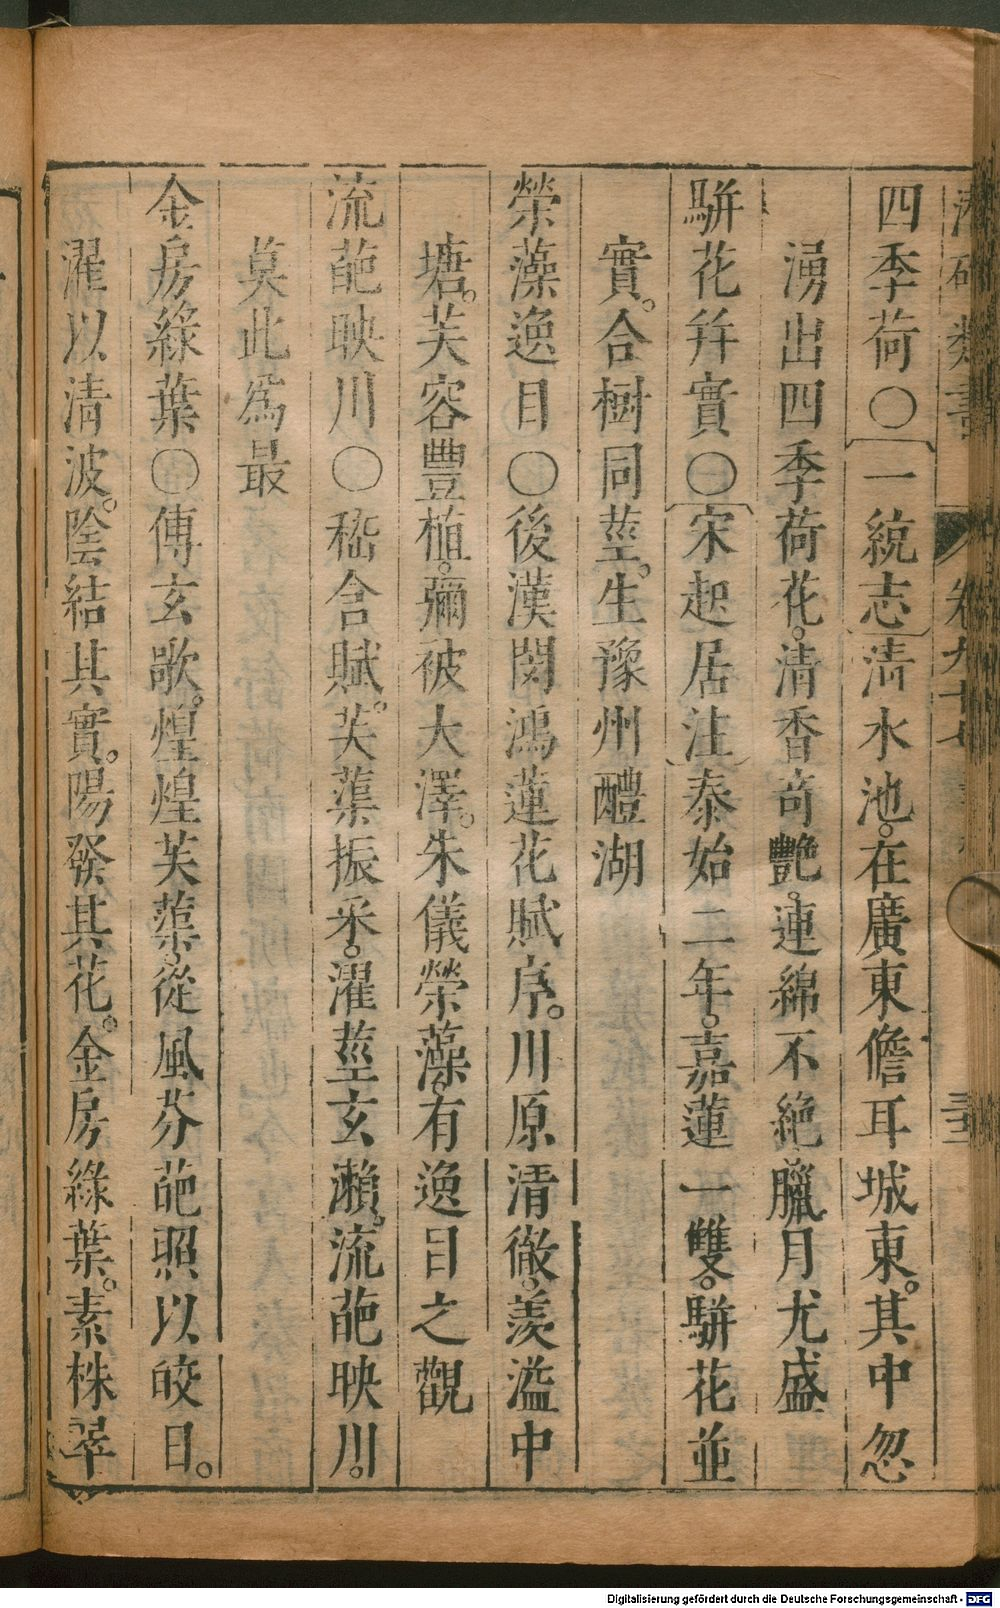 類書 卷九十七 三十二
四季荷○〔一統志〕清水池。在廣東儋耳城東。其中忽
湧出四季荷花。清香奇艷。連綿不絶臘月尤盛
駢花并實○〔宋起居注〕泰始二年。嘉蓮一雙。駢花並
實。合樹同莖。生豫州醴湖
榮藻逸目○後漢閔鴻蓮花賦序。川原清徹。羨溢中
塘。芙容豐植。彌被大澤。朱儀榮藻。有逸目之觀
流葩映川○嵇含賦。芙蕖振采。濯莖玄瀨。流葩映川。
莫此爲最
金房綠葉○傅玄歌。煌煌芙蕖。從風芬葩照以皎日。
濯以清波。陰結其實。陽發其花。金房綠葉。素株翠
Digitalisierung gefördert durch die Deutsche Forschungsgemeinschaft - DFG